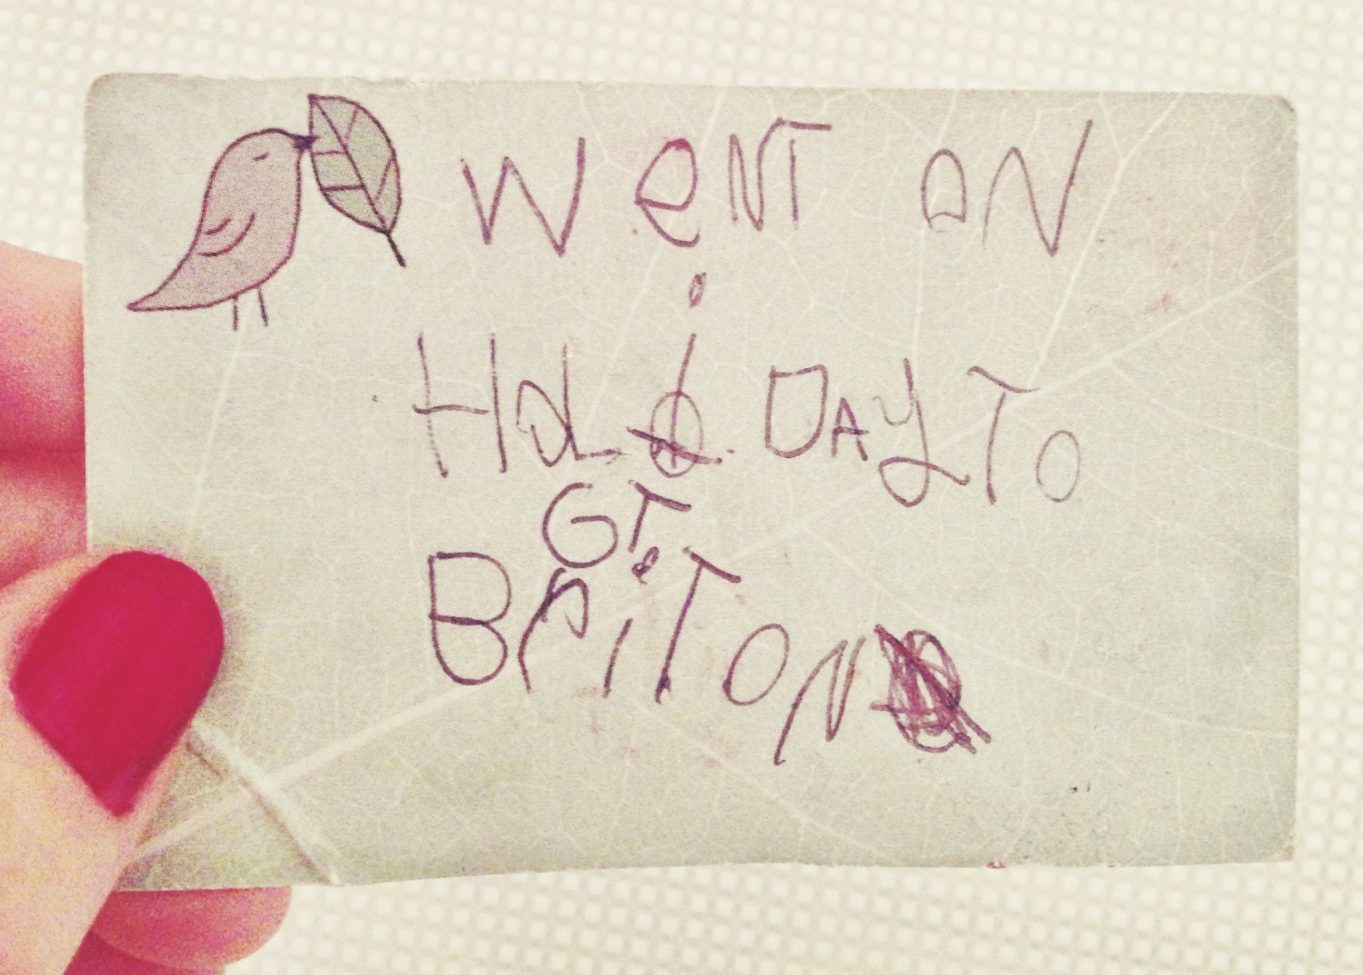 WeNT ON
HOLiDAY TO
GT.
BriTON